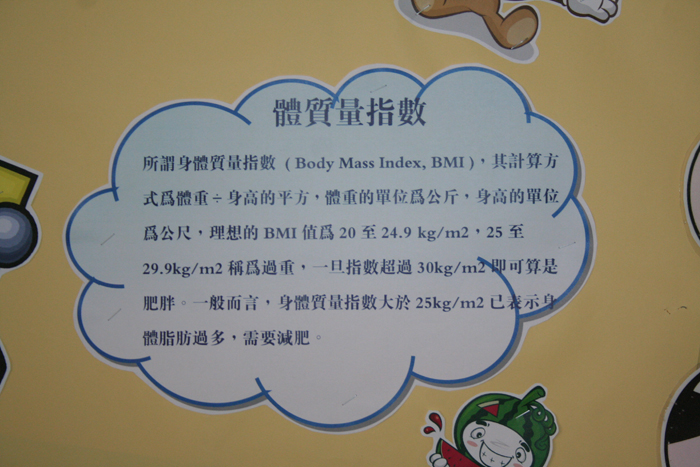 體質量指數
所謂身體質量指數 ( Body Mass Index, BMI )，其計算方
式爲體重÷身高的平方，體重的單位爲公斤，身高的單位
爲公尺，理想的 BMI 值爲 20 至 24.9 kg/m2，25 至
29.9kg/m2 稱爲過重，一旦指數超過 30kg/m2 即可算是
肥胖。一般而言，身體質量指數大於 25kg/m2 已表示身
體脂肪過多，需要減肥。